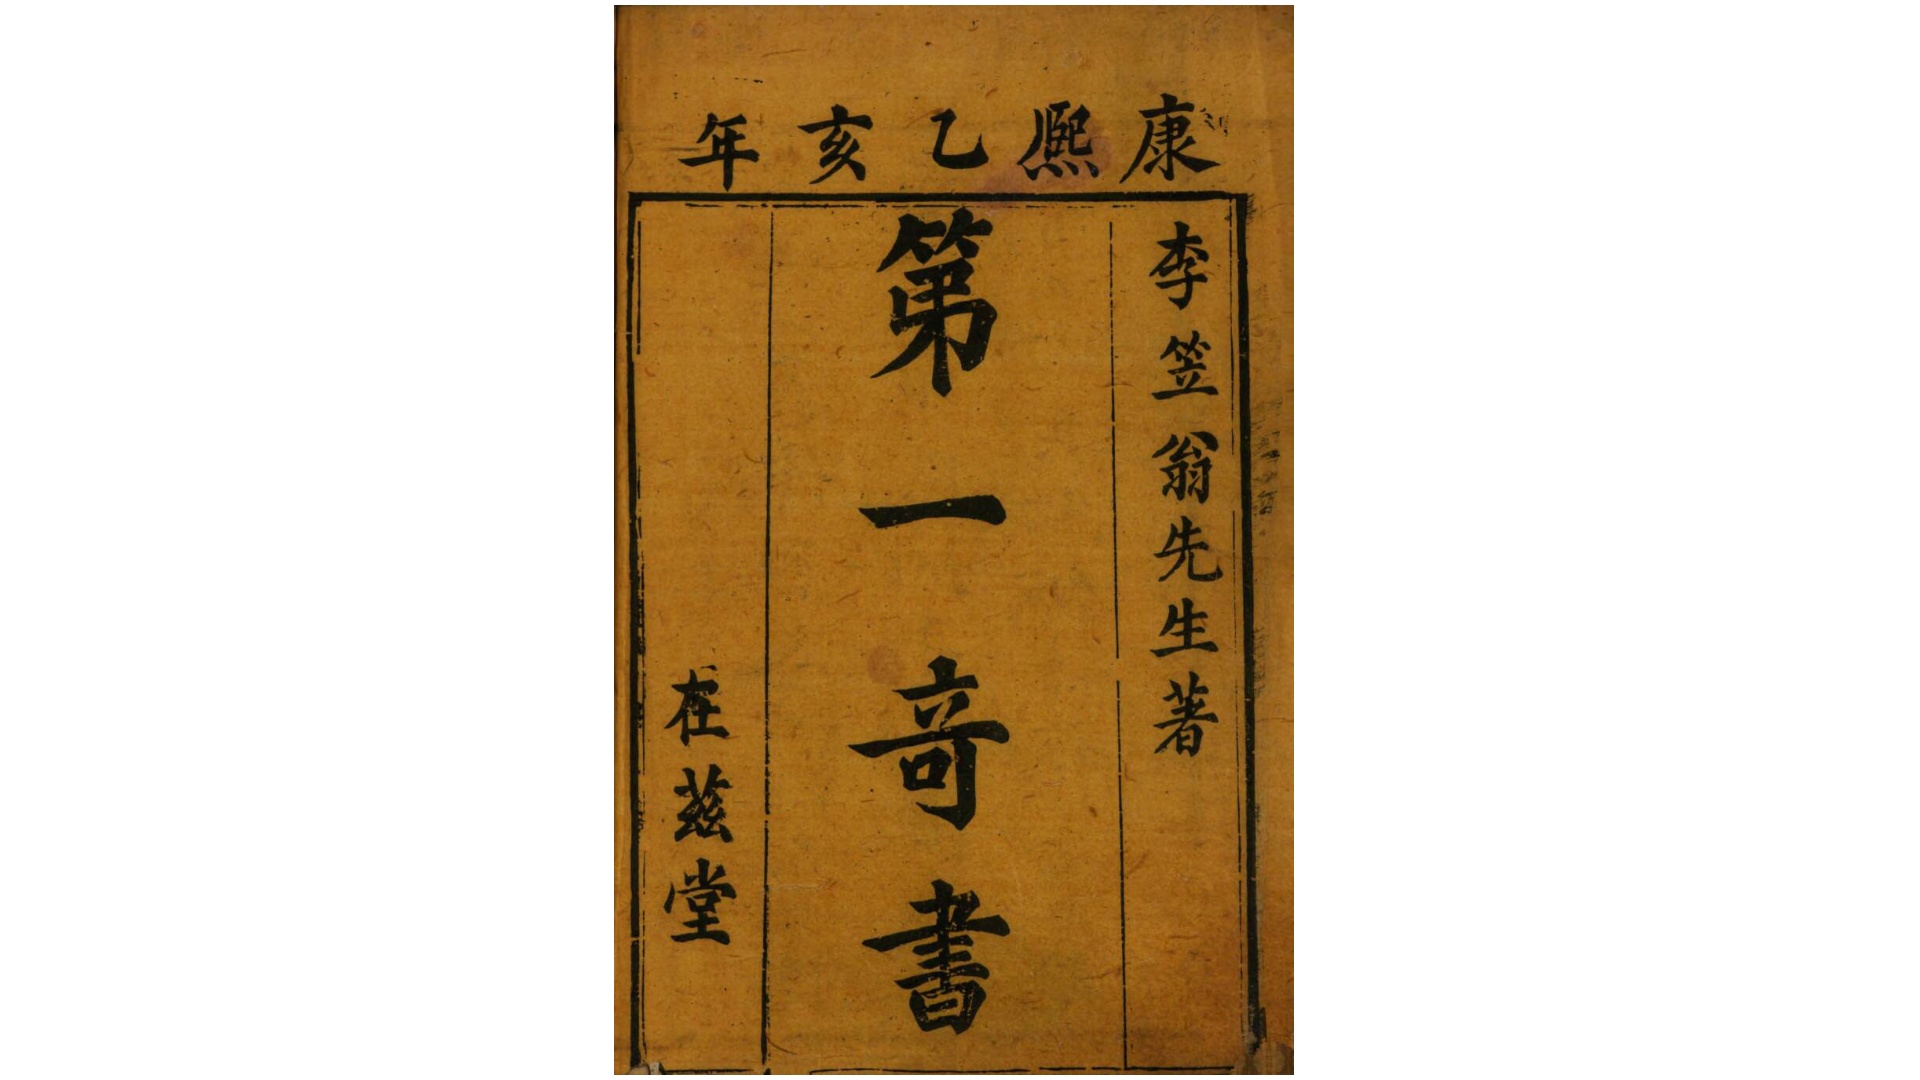 康熙乙亥年
李笠翁先生著
第一竒書
在茲堂